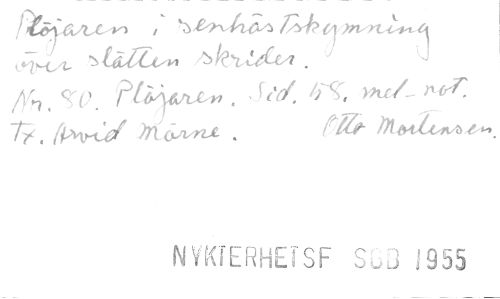 Plöjaren i senhöstskymning
över slätten skrider.
Nr. 80. Plöjaren. Sid. 58. mel-not.
Tx. Arvid Mörne. Otto Mortensen.
NYKTERHETSF SOB 1955